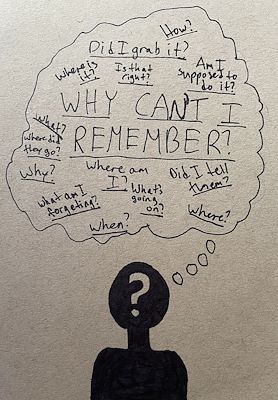 How?
Did I grab it?
Where is
it?
Is that
right?
Am I
supposed to
do it?
WHY CAN'T I
REMEMBER?
What?
Where did
they go?
Why?
Where am
I?
Did I tell
them?
What am I
forgeting?
What's
going
on?
When?
Where?
?